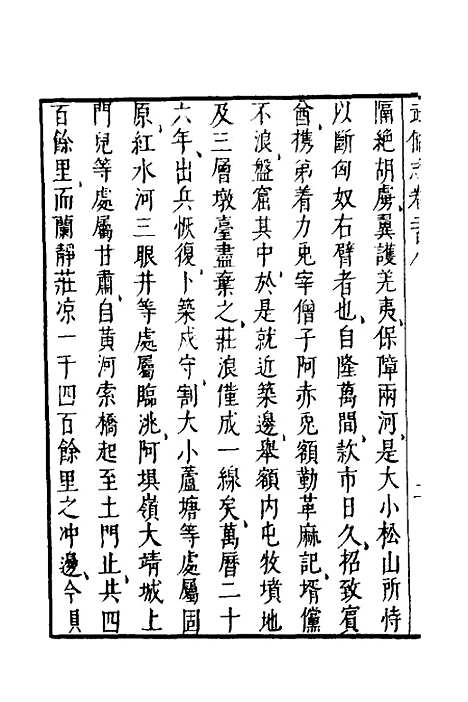 武備志卷二百八
隔絶胡虜翼護羌夷保障兩河是大小松山所恃
以斷匈奴右臂者也自隆萬間款市日久招致賓
酋携弟着力兎宰僧子阿赤兎額勒革麻記壻黨
不浪盤窟其中於是就近築邊舉額内屯牧墳地
及三層墩臺盡棄之莊浪僅成一線矣萬曆二十
六年出兵恢復卜築戍守割大小蘆塘等處屬固
原紅水河三眼井等處屬臨洮阿埧嶺大靖城上
門兒等處屬甘肅自黄河索橋起至土門止共四
百餘里而蘭靜莊凉一千四百餘里之冲邊今貝